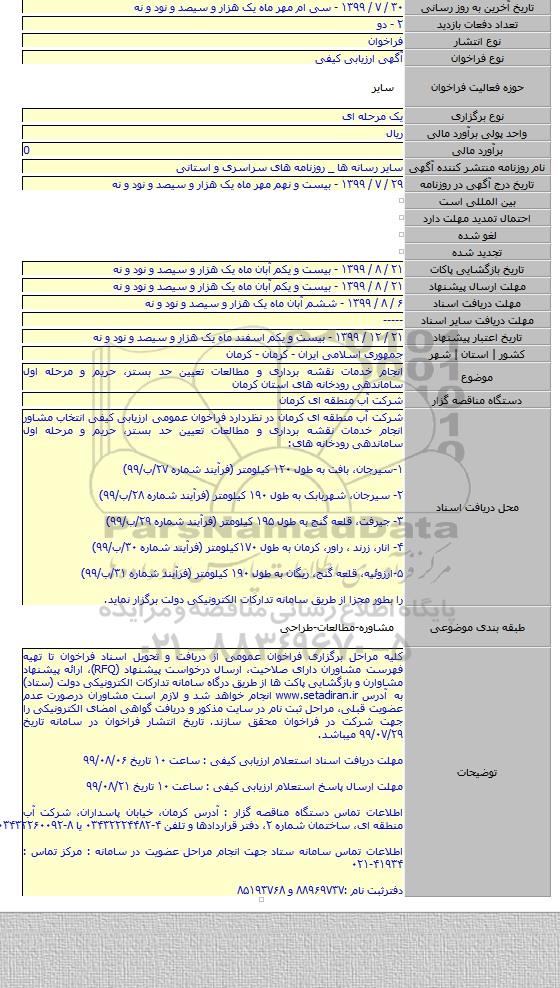 تاریخ آخرین به روز رسانی ۳۰ / ۷ / ۱۳۹۹ - سی ام مهر ماه یک هزار و سیصد و نود و نه
تعداد دفعات بازدید ۲ - دو
نوع انتشار فراخوان
نوع فراخوان آگهی ارزیابی کیفی
حوزه فعالیت فراخوان سایر
نوع برگزاری یک مرحله ای
واحد پولی برآورد مالی ریال
برآورد مالی 0
نام روزنامه منتشر کننده آگهی سایر رسانه ها _ روزنامه های سراسری و استانی
تاریخ درج آگهی در روزنامه ۲۹ / ۷ / ۱۳۹۹ - بیست و نهم مهر ماه یک هزار و سیصد و نود و نه
بین المللی است
احتمال تمدید مهلت دارد
لغو شده
تجدید شده
تاریخ بازگشایی پاکات ۲۱ / ۸ / ۱۳۹۹ - بیست و یکم آبان ماه یک هزار و سیصد و نود و نه
مهلت ارسال پیشنهاد ۲۱ / ۸ / ۱۳۹۹ - بیست و یکم آبان ماه یک هزار و سیصد و نود و نه
مهلت دریافت اسناد ۶ / ۸ / ۱۳۹۹ - ششم آبان ماه یک هزار و سیصد و نود و نه
مهلت دریافت سایر اسناد -----
تاریخ اعتبار پیشنهاد ۲۱ / ۱۲ / ۱۳۹۹ - بیست و یکم اسفند ماه یک هزار و سیصد و نود و نه
کشور | استان | شهر جمهوری اسلامی ایران - کرمان - کرمان
موضوع انجام خدمات نقشه برداری و مطالعات تعیین حد بستر، حریم و مرحله اول
ساماندهی رودخانه های استان کرمان
دستگاه مناقصه گزار شرکت آب منطقه ای کرمان
شرکت آب منطقه ای کرمان در نظردارد فراخوان عمومی ارزیابی کیفی انتخاب مشاور
انجام خدمات نقشه برداری و مطالعات تعیین حد بستر، حریم و مرحله اول
ساماندهی رودخانه های:
۱-سیرجان، بافت به طول ۱۲۰ کیلومتر (فرآیند شماره ۲۷/ب/۹۹)
۲- سیرجان، شهربابک به طول ۱۹۰ کیلومتر (فرآیند شماره ۲۸/ب/۹۹)
محل دریافت اسناد
۳- جیرفت، قلعه گنج به طول ۱۹۵ کیلومتر (فرآیند شماره ۲۹/ب/۹۹)
ParsNamadData
۴- انار، زرند ، راور، کرمان به طول ۱۷۰کیلومتر (فرآیند شماره ۳۰/ب/۹۹)
۵-ارزوئیه، قلعه گنج، ریگان به طول ۱۹۰ کیلومتر (فرآیند شماره ۳۱/ب/۹۹)
را بطور مجزا از طریق سامانه تدارکات الکترونیکی دولت برگزار نماید.
پایگاه اطلاع رسانی مناقصه و مزایده
طبقه بندی موضوعی مشاوره-مطالعات-طراحی
۰۲۱-۸۸۳۴۹۶۷۰-۵
کلیه مراحل برگزاری فراخوان عمومی از دریافت و تحویل اسناد فراخوان تا تهیه
فهرست مشاوران دارای صلاحیت، ارسال درخواست پیشنهاد (RFQ)، ارائه پیشنهاد
مشاوران و بازگشایی پاکت ها از طریق درگاه سامانه تدارکات الکترونیکی دولت (ستاد)
به آدرس www.setadiran.ir انجام خواهد شد و لازم است مشاوران درصورت عدم
عضویت قبلی، مراحل ثبت نام در سایت مذکور و دریافت گواهی امضای الکترونیکی را
جهت شرکت در فراخوان محقق سازند. تاریخ انتشار فراخوان در سامانه تاریخ
۹۹/۰۷/۲۹ میباشد.
مهلت دریافت اسناد استعلام ارزیابی کیفی : ساعت ۱۰ تاریخ ۹۹/۰۸/۰۶
توضیحات
مهلت ارسال پاسخ استعلام ارزیابی کیفی : ساعت ۱۰ تاریخ ۹۹/۰۸/۲۱
اطلاعات تماس دستگاه مناقصه گزار : آدرس کرمان، خیابان پاسداران، شرکت آب
منطقه ای، ساختمان شماره ۲، دفتر قراردادها و تلفن ۴-۰۳۴۳۲۲۲۴۴۸۲ یا ۸-۰۳۴۳۲۲۶۰۰۹۲
اطلاعات تماس سامانه ستاد جهت انجام مراحل عضویت در سامانه : مرکز تماس :
۰۲۱-۴۱۹۳۴
دفترثبت نام :۸۸۹۶۹۷۳۷ و ۸۵۱۹۳۷۶۸